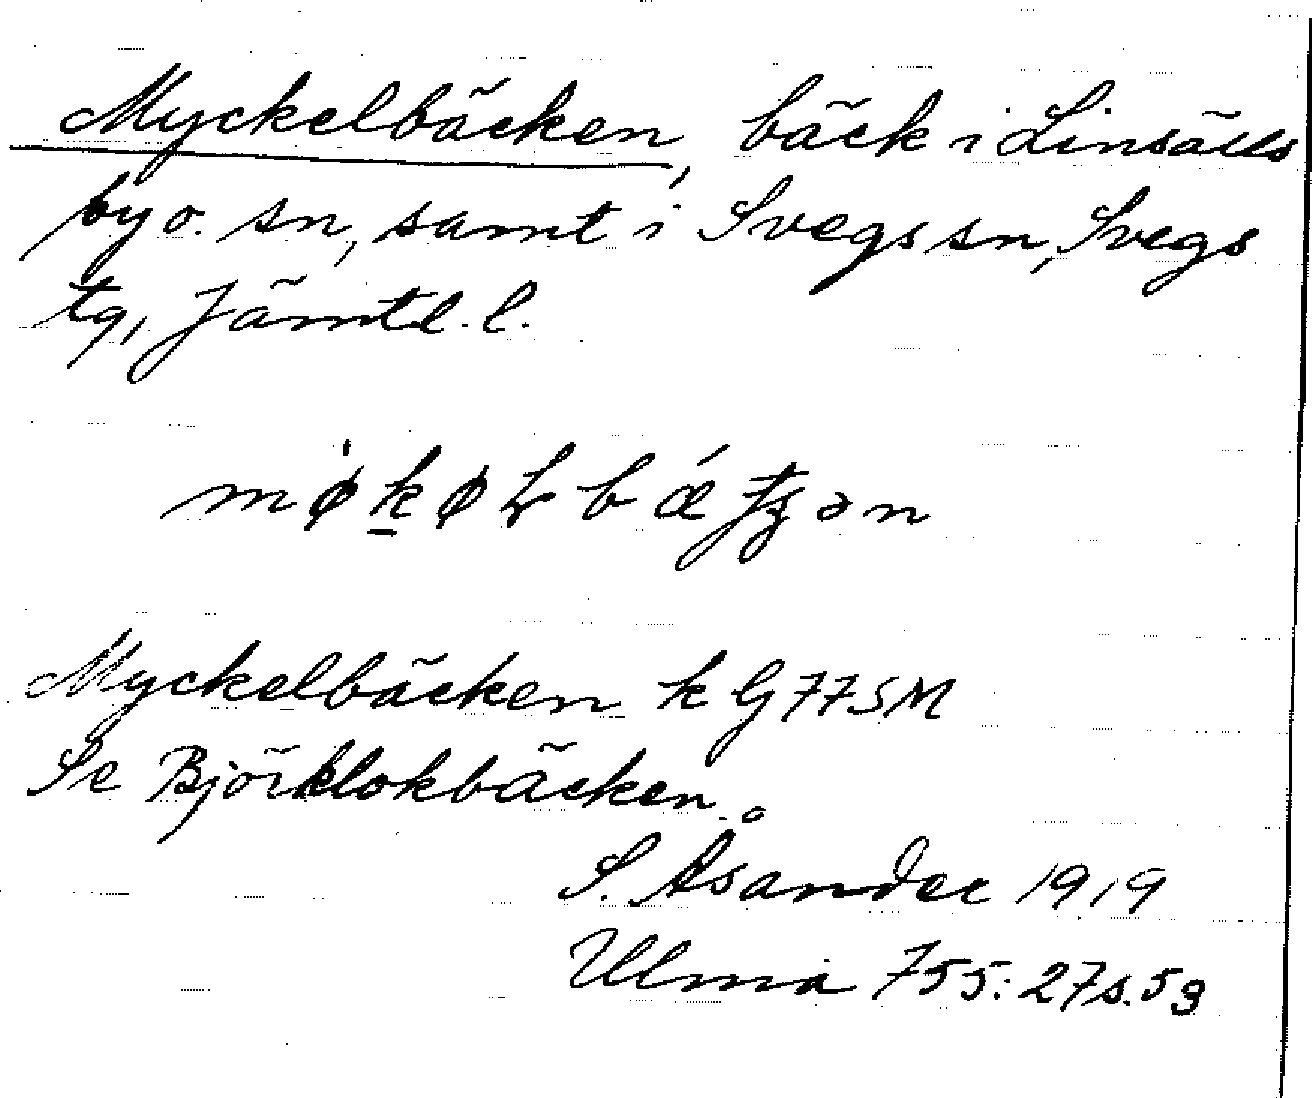 Myckelbäcken, bäck i Linsälls
by o. sn, samt i Svegs sn, Svegs
tg, Jämtl. l.
Myckelbäcken k G77SM
Se Björklokbäcken.
S. Åsander 1919
Ulma 755:27 s. 53